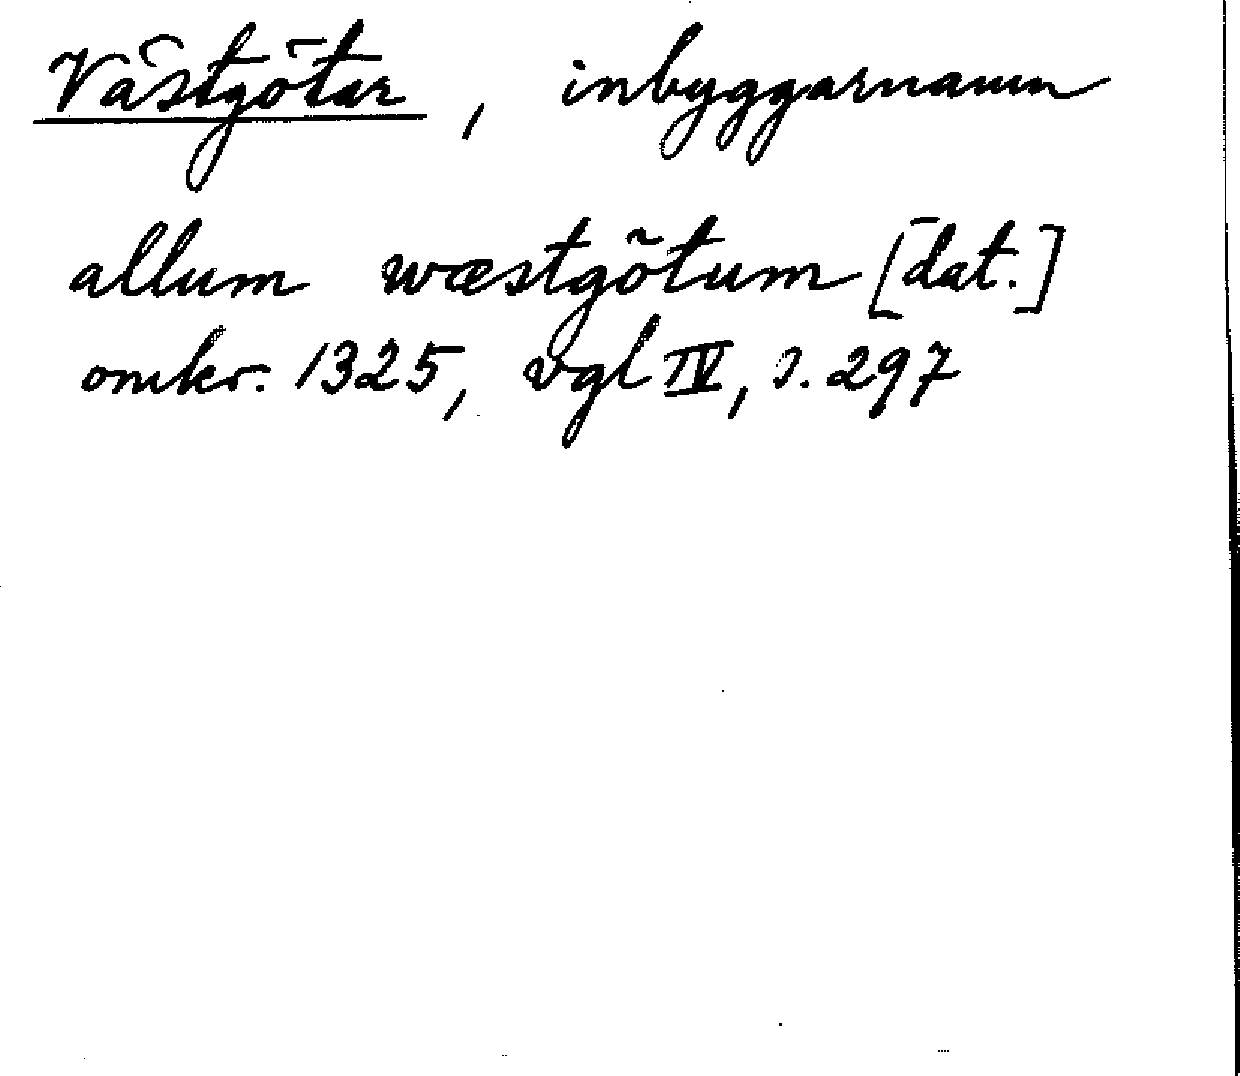 Västgötar, inbyggarnamn
allum wæstgötum [dat.]
omkr. 1325, vgl IV, s. 297